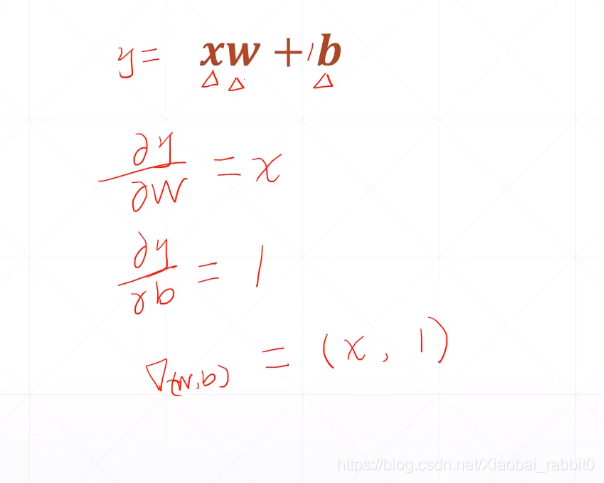 y = xw + 1b
∂y/∂w = x
∂y/∂b = 1
∇(w,b) = (x, 1)
https://blog.csdn.net/Xiaobai_rabbit0